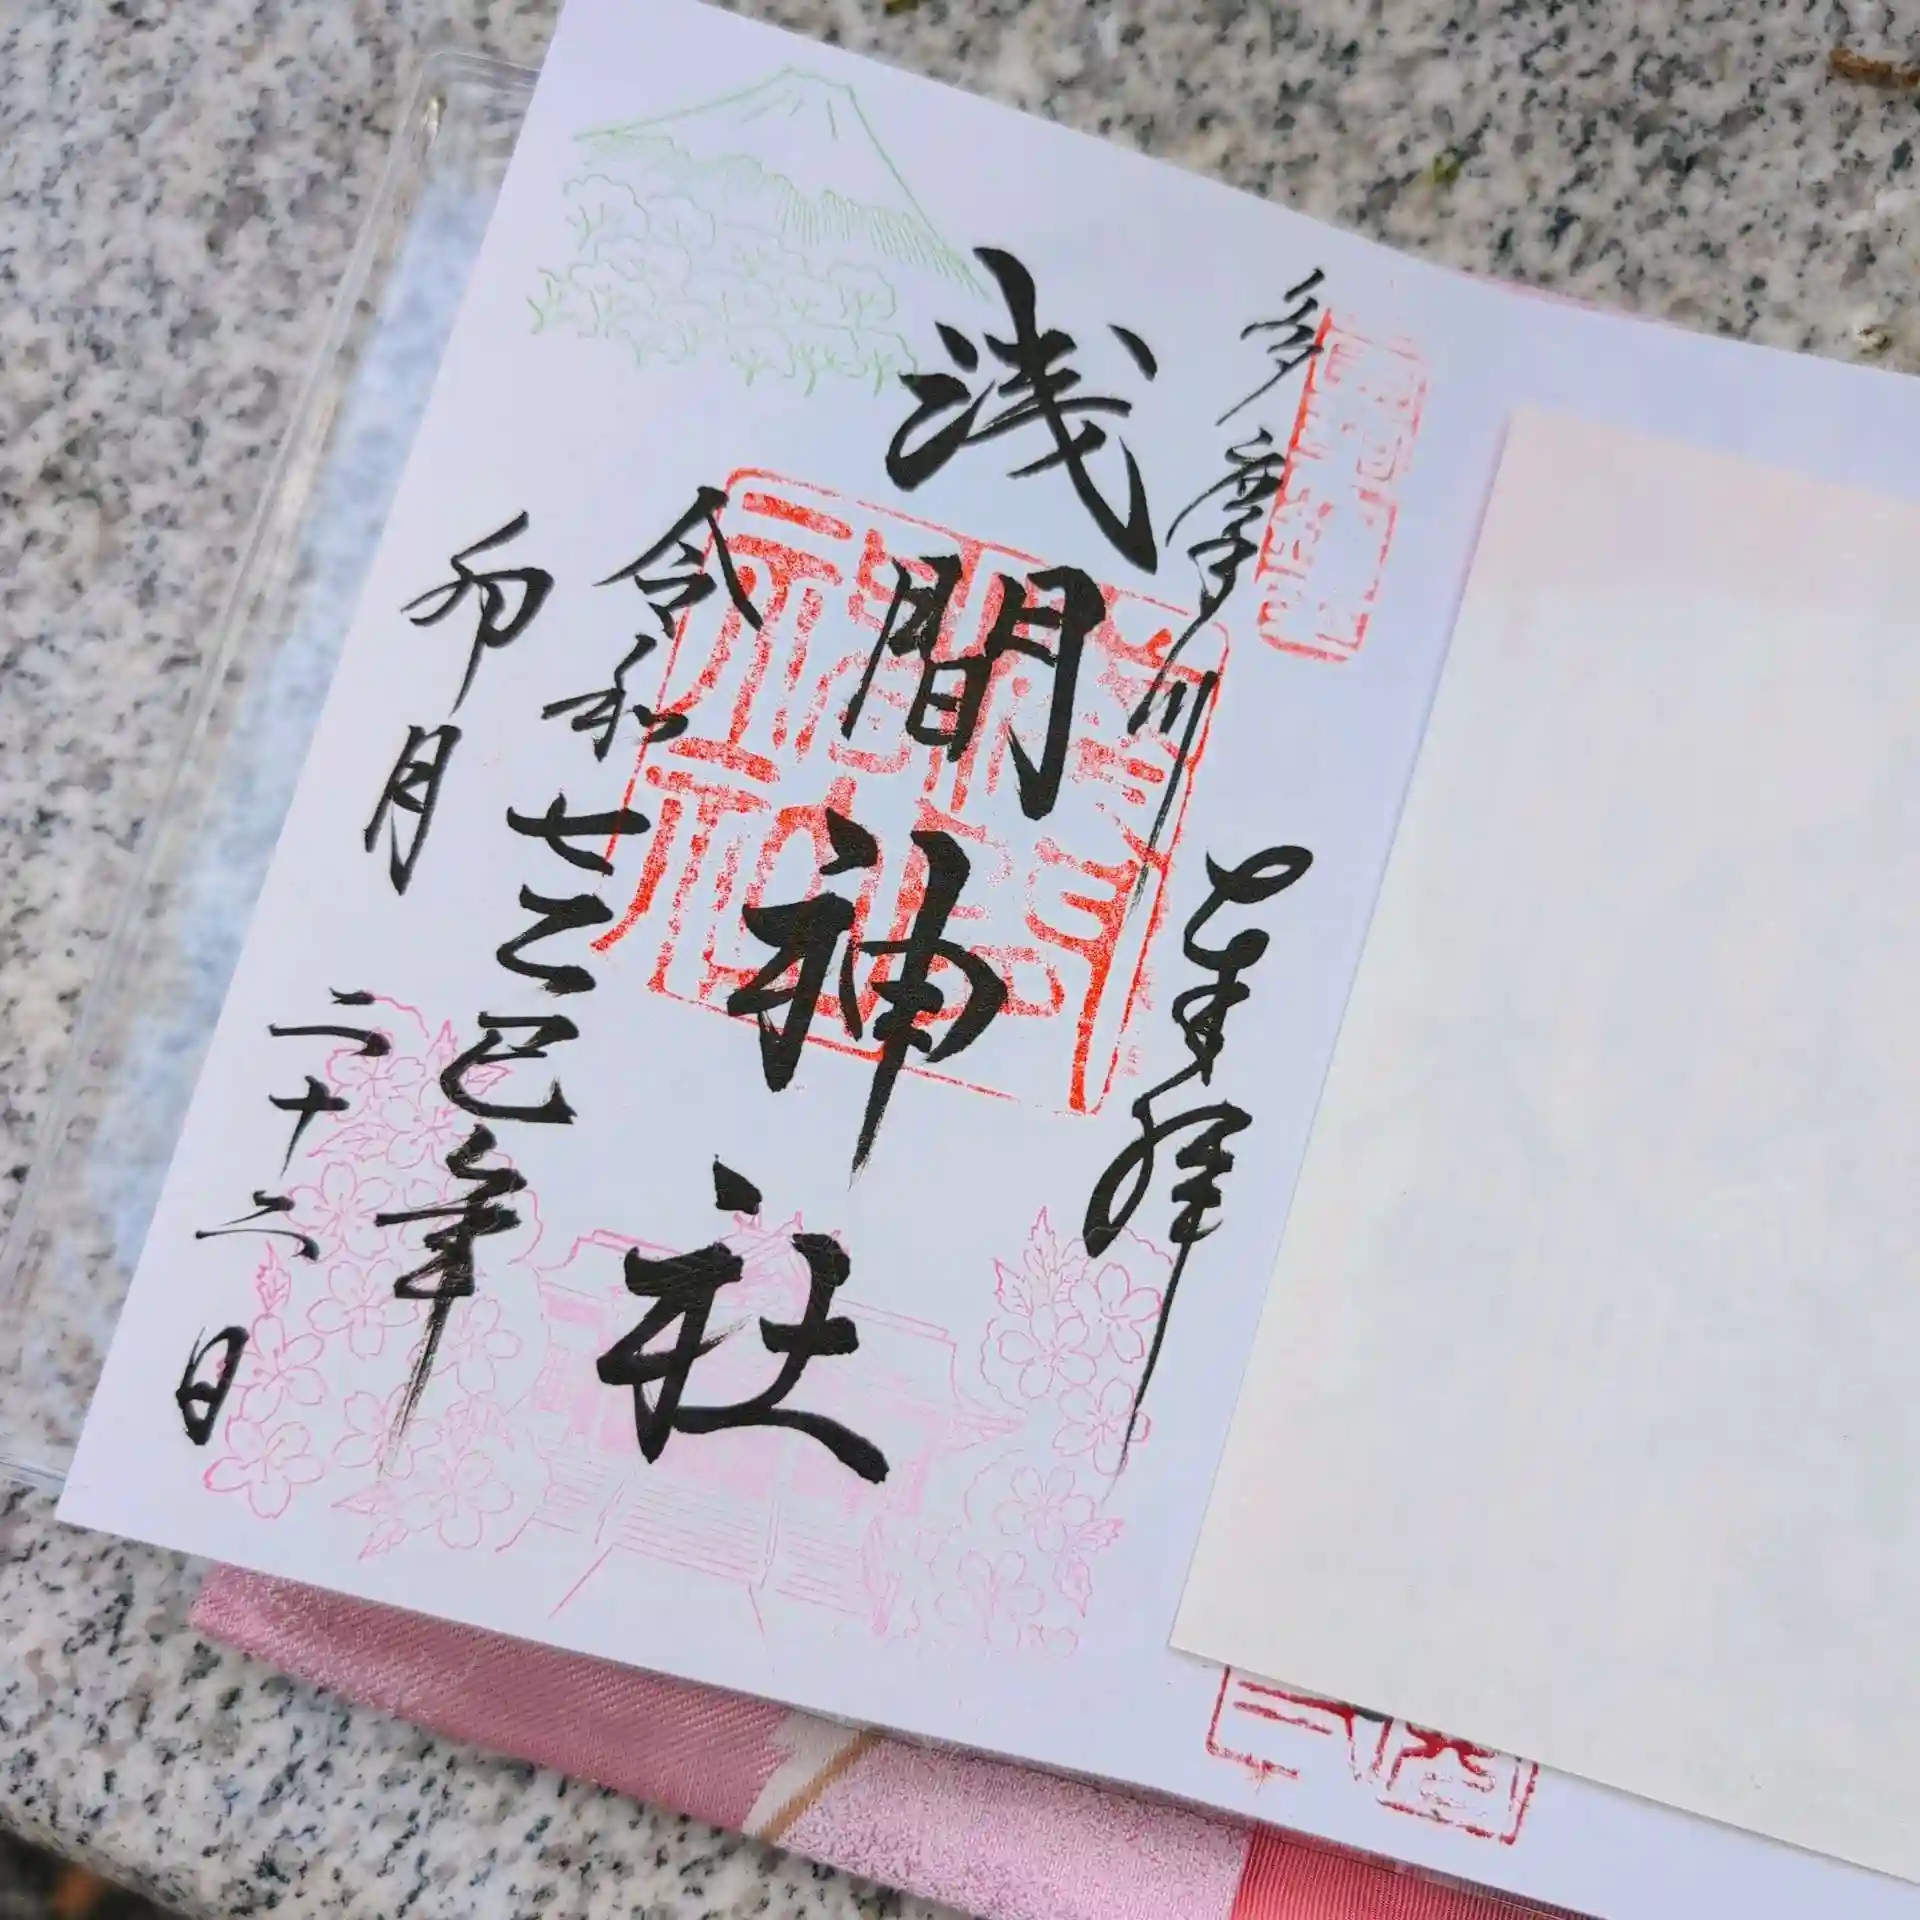 多摩川
奉拝
浅間神社
令和七乙巳年
卯月
二十六日